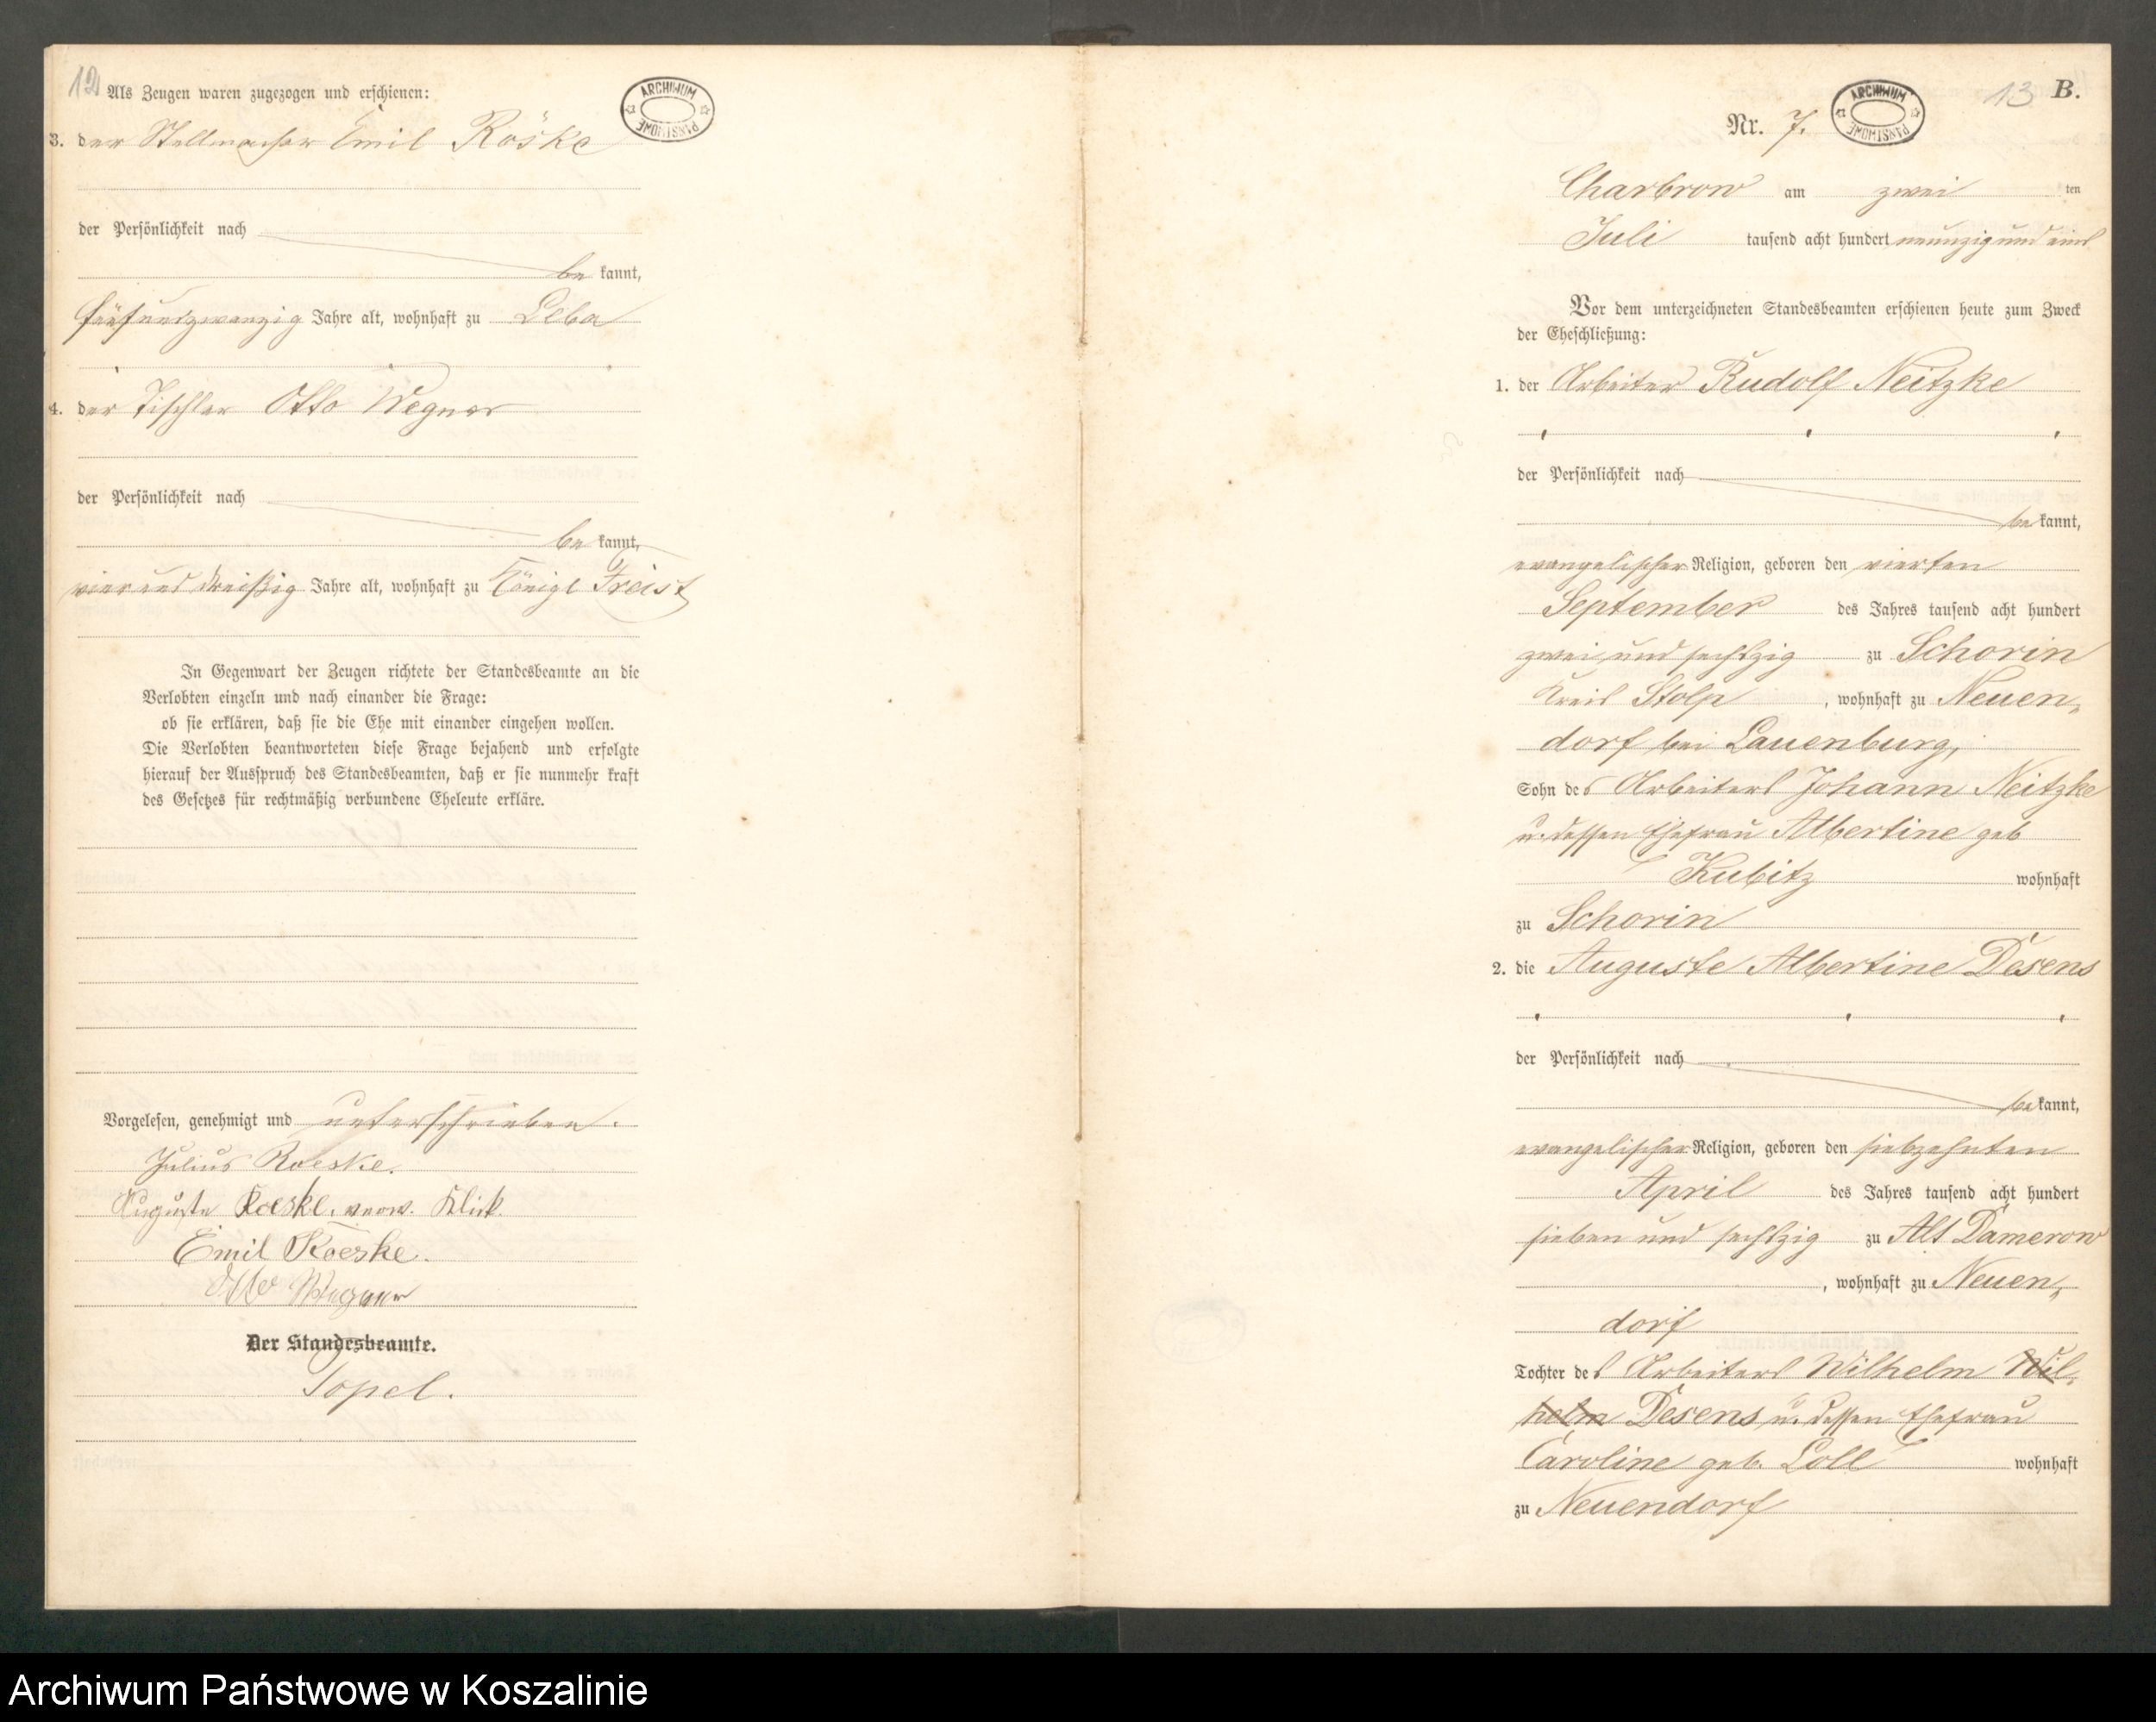 12
Als Zeugen waren zugezogen und erschienen:
ARCHIWUM PAŃSTWOWE
3. der Stellmacher Emil Röske
der Persönlichkeit nach
be kannt,
fünfundzwanzig Jahre alt, wohnhaft zu Leba
4. der Tischler Otto Wegner
der Persönlichkeit nach
be kannt,
vier und dreißig Jahre alt, wohnhaft zu Königl Freist
In Gegenwart der Zeugen richtete der Standesbeamte an die
Verlobten einzeln und nach einander die Frage:
ob sie erklären, daß sie die Ehe mit einander eingehen wollen.
Die Verlobten beantworteten diese Frage bejahend und erfolgte
hierauf der Ausspruch des Standesbeamten, daß er sie nunmehr kraft
des Gesetzes für rechtmäßig verbundene Eheleute erkläre.
Vorgelesen, genehmigt und unterschrieben.
Julius Roeske.
Auguste Roeske, verw. Klick.
Emil Roeske.
Otto Wegner
Der Standesbeamte.
Topel.
13 B.
Nr. 7.
ARCHIWUM PAŃSTWOWE
Charbrow am zwei ten
Juli tausend acht hundert neunzig und eins
Vor dem unterzeichneten Standesbeamten erschienen heute zum Zweck
der Eheschließung:
1. der Arbeiter Rudolf Neitzke
der Persönlichkeit nach
be kannt,
evangelischer Religion, geboren den vierten
September des Jahres tausend acht hundert
zwei und sechszig zu Schorin
Kreis Stolp, wohnhaft zu Neuen„
dorf bei Lauenburg,
Sohn des Arbeiters Johann Neitzke
u. dessen Ehefrau Albertine geb
Kubitz wohnhaft
zu Schorin
2. die Auguste Albertine Desens
der Persönlichkeit nach
be kannt,
evangelischer Religion, geboren den siebzehnten
April des Jahres tausend acht hundert
sieben und sechszig zu Alt Damerow
, wohnhaft zu Neuen„
dorf
Tochter des Arbeiters Wilhelm Wil„
helm Desens u. dessen Ehefrau
Caroline geb. Loll wohnhaft
zu Neuendorf
Archiwum Państwowe w Koszalinie